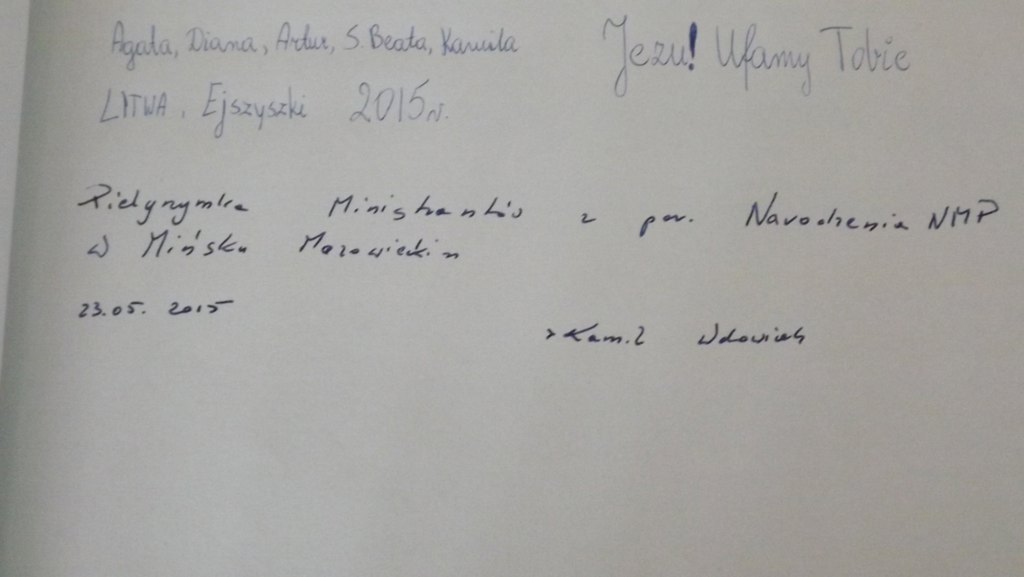 Agata, Diana, Artur, S. Beata, Kamila
Jezu! Ufamy Tobie
LITWA, Ejszyszki 2015r.
Pielgrzymka Ministrantów z par. Narodzenia NMP
w Mińsku Mazowieckim
23.05.2015
x Kamil Wdowiak